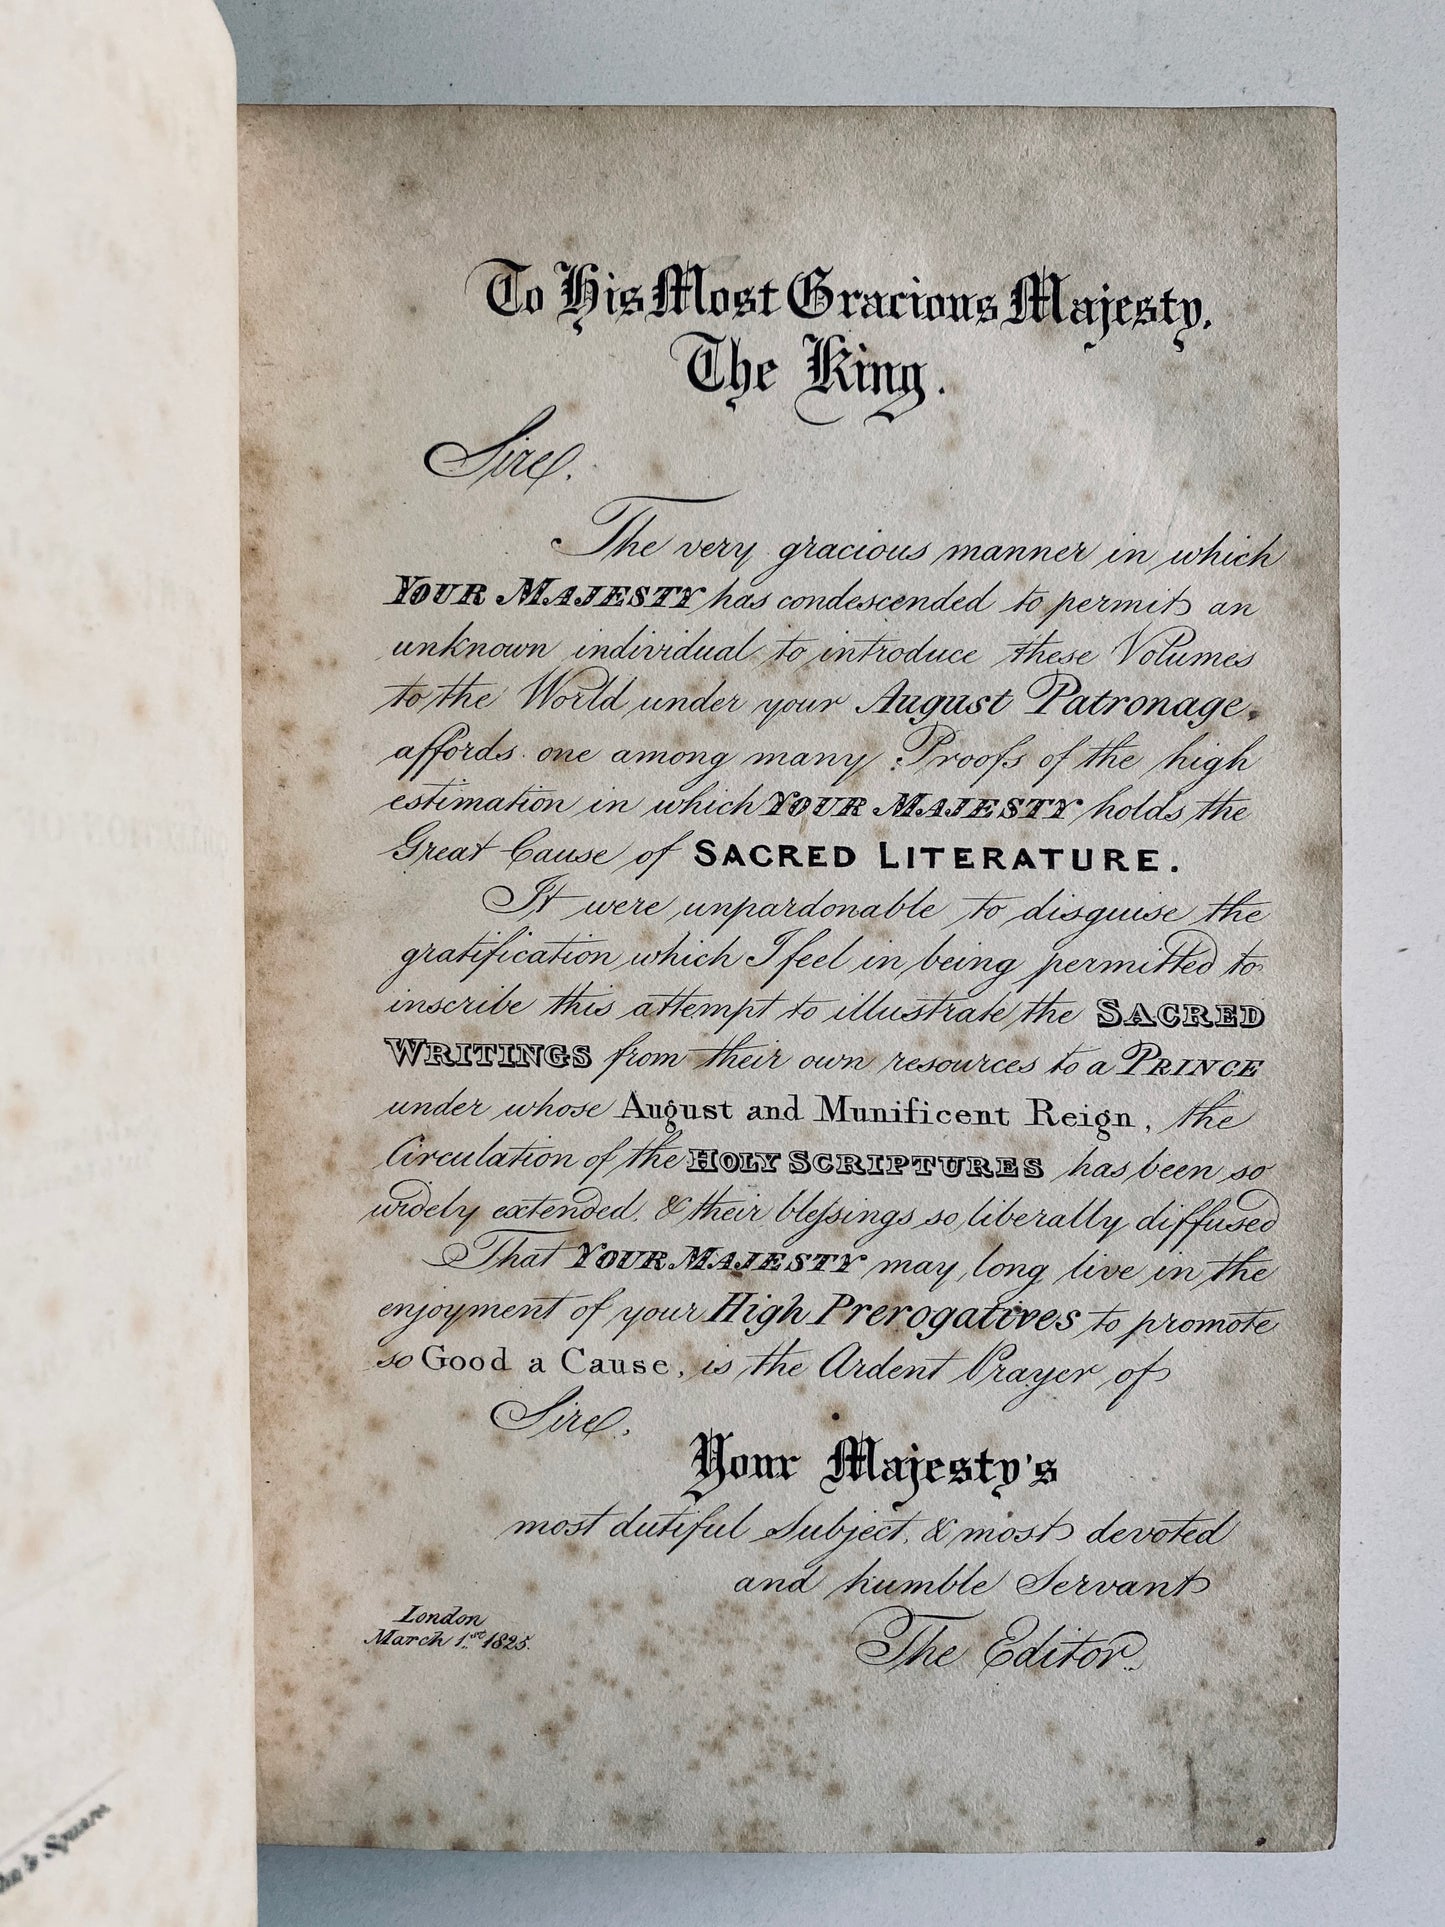 To His Most Gracious Majesty,
The King.
Sire,
The very gracious manner in which
YOUR MAJESTY has condescended to permit an
unknown individual to introduce these Volumes
to the World under your August Patronage,
affords one among many Proofs of the high
estimation in which YOUR MAJESTY holds the
Great Cause of SACRED LITERATURE.
It were unpardonable to disguise the
gratification which I feel in being permitted to
inscribe this attempt to illustrate the SACRED
WRITINGS from their own resources to a PRINCE
under whose August and Munificent Reign, the
Circulation of the HOLY SCRIPTURES has been so
widely extended, & their blessings so liberally diffused
That YOUR MAJESTY may long live in the
enjoyment of your High Prerogatives to promote
so Good a Cause, is the Ardent Prayer of
Sire,
Your Majesty's
most dutiful Subject, & most devoted
and humble Servant
The Editor.
London
March 1.st 1825.
Square